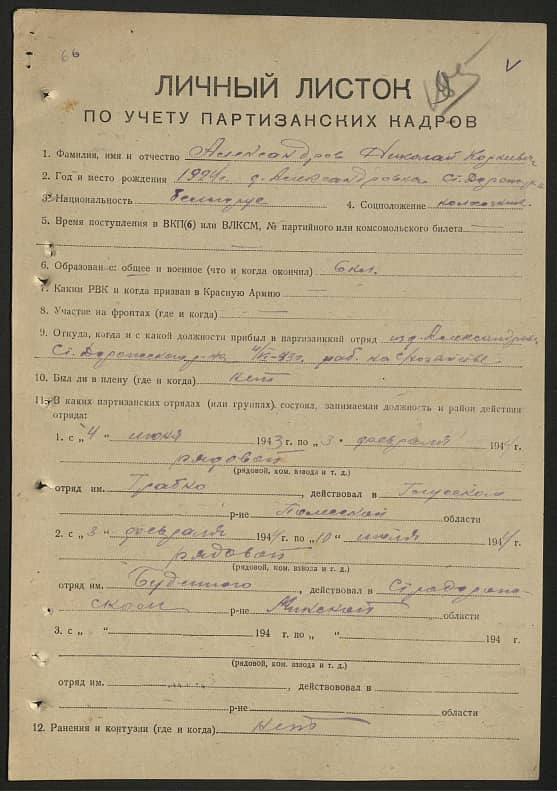 66
V
ЛИЧНЫЙ ЛИСТОК
ПО УЧЕТУ ПАРТИЗАНСКИХ КАДРОВ
1. Фамилия, имя и отчество Александров Николай
2. Год и место рождения 1924 г. д. Александровка Ст. Дорожск.
3. Национальность белорус 4. Соцположение колхозник
5. Время поступления в ВКП(б) или ВЛКСМ, № партийного или комсомольского билета
6. Образован е: общее и военное (что и когда окончил) 6 кл.
7. Каким РВК и когда призван в Красную Армию —
8. Участие на фронтах (где и когда) —
9. Откуда, когда и с какой должности прибыл в партизанский отряд из д. Александровк
Ст. Дорожского р-на 4/VI-43 г. раб.
10. Был ли в плену (где и когда) нет
11. В каких партизанских отрядах (или группах) состоял, занимаемая должность и район действия
отряда:
1. с „4" июня 1943 г. по „3" февраля 1944 г.
рядовой
(рядовой, ком. взвода и т. д.)
отряд им. Грабко, действовал в Глусском
р-не Полесской области
2. с „3" февраля 1944 г. по „10" июля 1944 г.
рядовой
(рядовой, ком. взвода и т. д.)
отряд им. Буденного, действовал в Стародорож-
ском р-не Минской области
3. с „ " 194 г. по „ " 194 г.
(рядовой, ком. взвода и т. д.)
отряд им. , действововал в
р-не области
12. Ранения и контузии (где и когда) нет